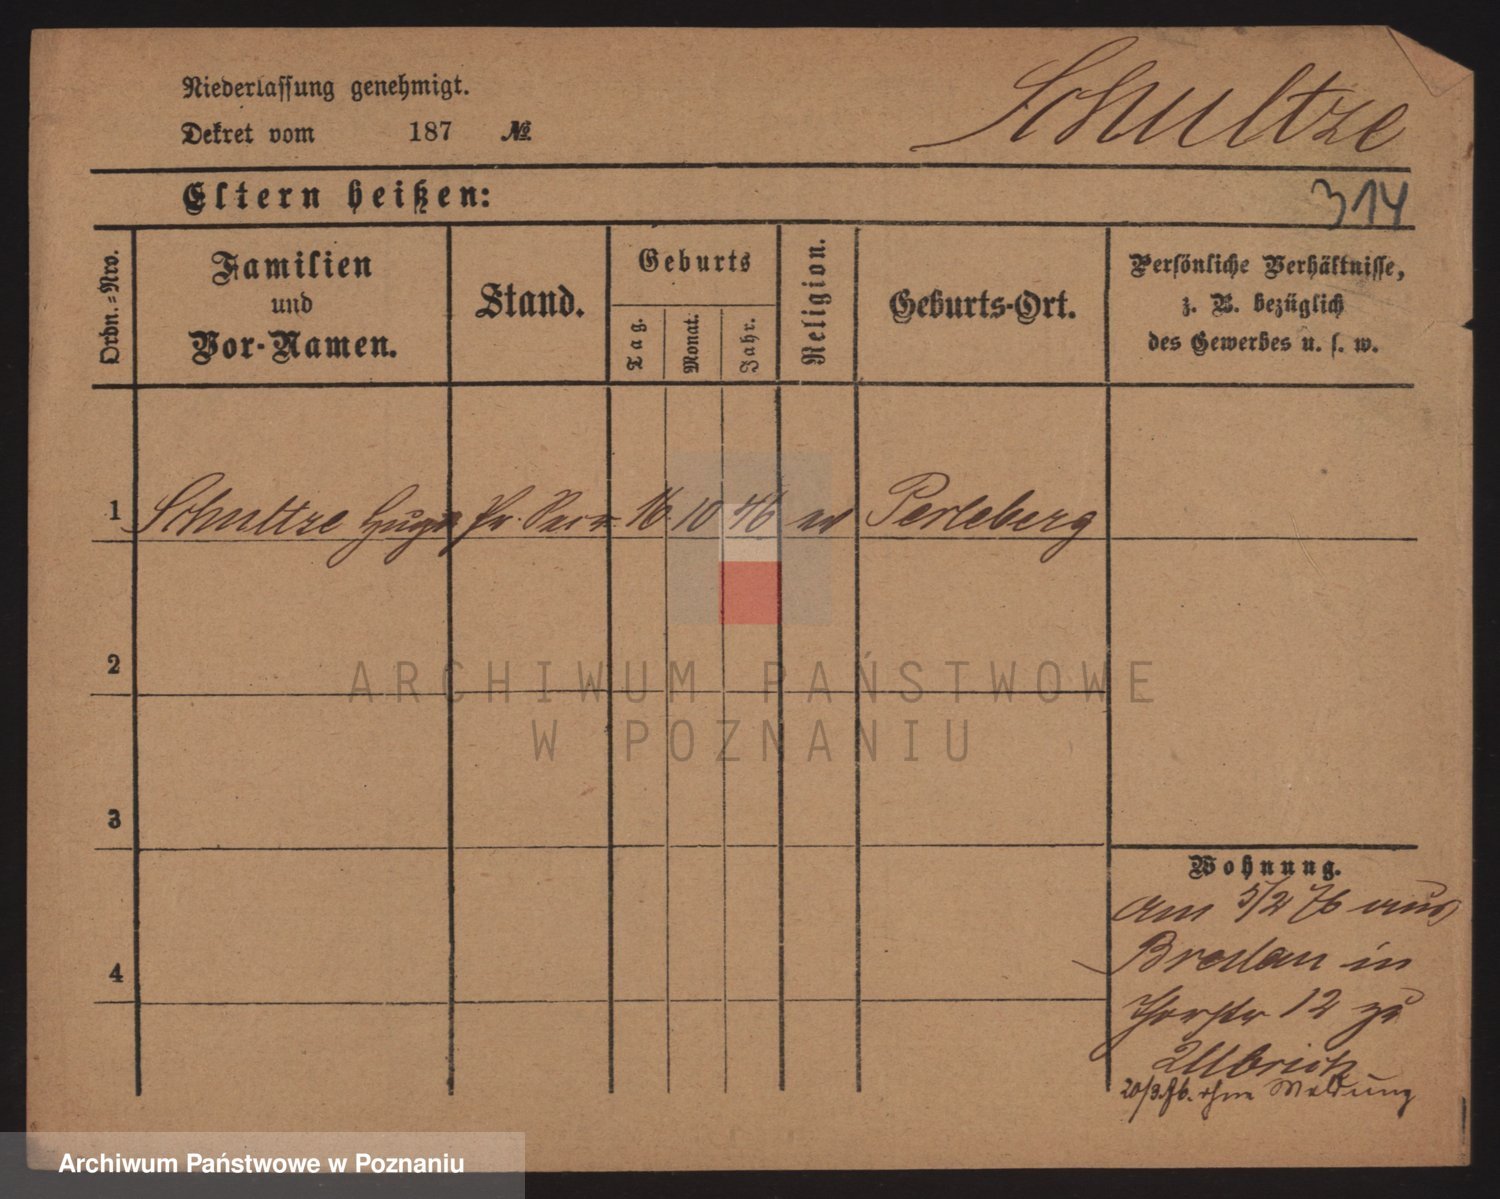 Niederlassung genehmigt.
Dekret vom 187 №
Schultze
Eltern heißen:
314
Ordn.=Nro.
Familien
und
Vor-Namen.
Stand.
Geburts
Tag.
Monat.
Jahr.
Religion.
Geburts-Ort.
Persönliche Verhältnisse,
z. B. bezüglich
des Gewerbes u. s. w.
1 Schultze Hugo 16 10 46 ev Perleberg
2
3
4
Wohnung.
am 5/2 76 aus
Breslau in
12 zu
Ullbrich
20/3.76. ohne Meldung
ARCHIWUM PAŃSTWOWE
W POZNANIU
Archiwum Państwowe w Poznaniu